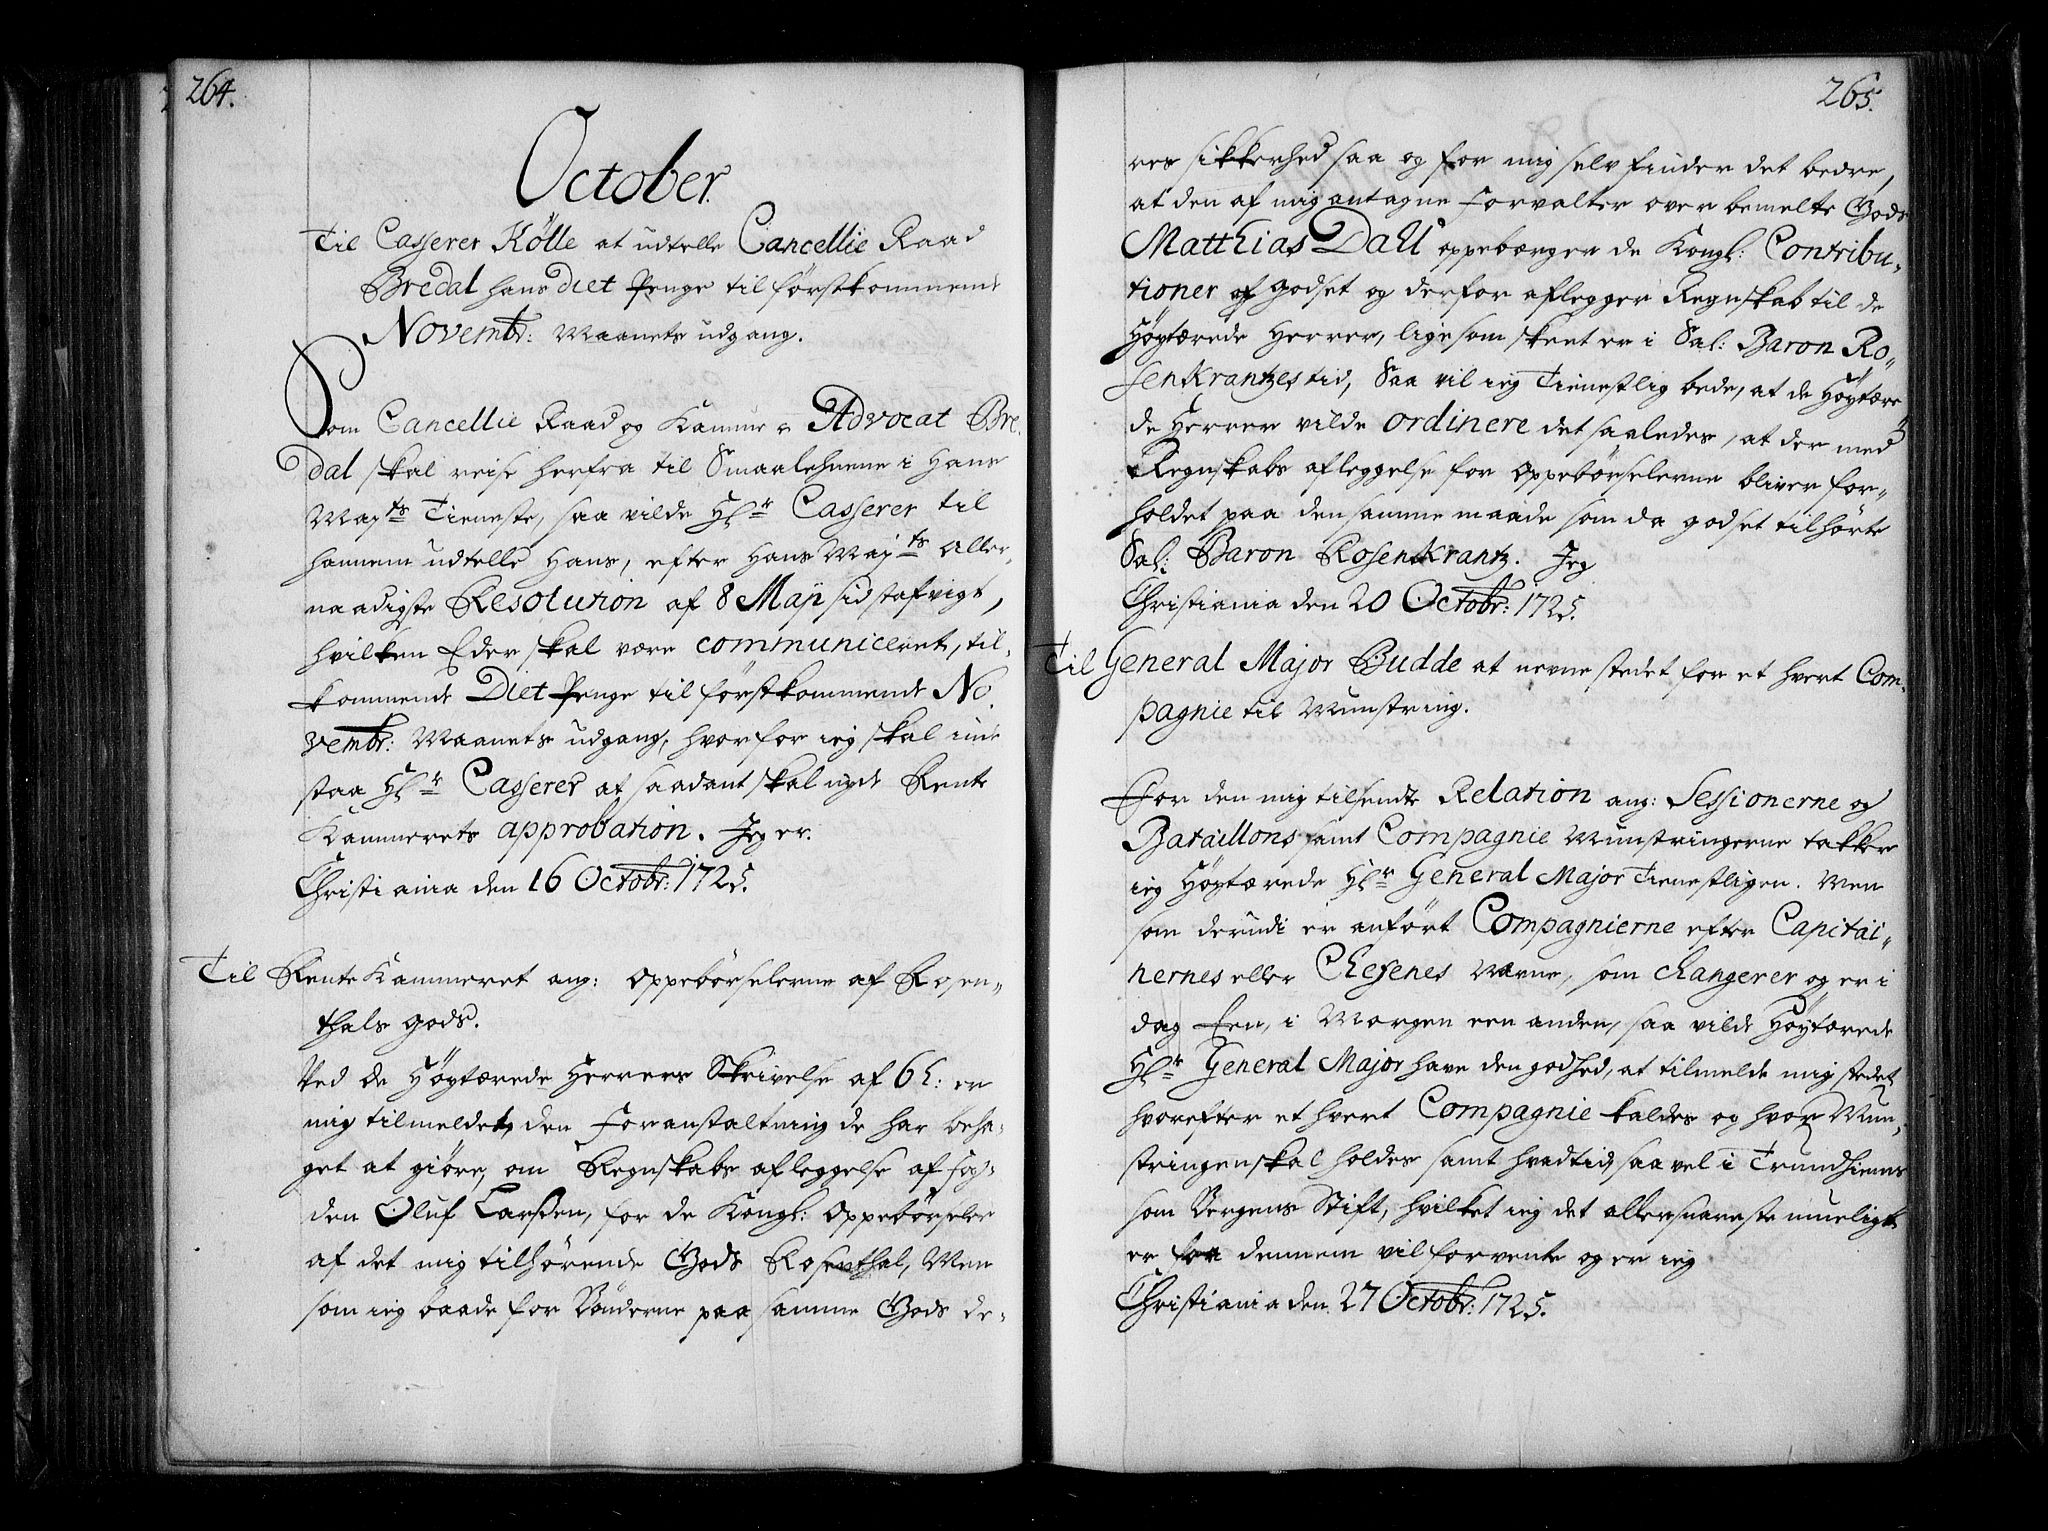 264.
October.
Til Casserer Kölle at udtelle Cancellie Raad
Bredal hans Diet Penge til førstkommende
Novembr: Maanets udgang.
Som Cancellie Raad og Kammer Advocat Bre-
dal skal reise herfra til Smaalehnene i Hans
Mayts Tieneste, saa vilde Hr Casserer til
hannem udtelle hans, efter Hans Mayts aller-
naadigste Resolution af 8 Maji sidstafvigt,
hvilken Eder skal være communiceret, til-
kommende Diet Penge til førstkommende No-
vembr: Maanets udgang, hvorfor ieg skal inde
staa Hr Casserer at saadant skal nyde Rente
Kammerets approbation. Jeg er.
Christiania den 16 Octobr: 1725.
Til Rente Kammeret ang: oppebörselerne af Rosen-
thals gods.
Ved de Höytærede Herrers Skrivelse af 6 h: er
mig tilmeldet, den Foranstaltning de har beha-
get at giöre, om Regnskabs afleggelse af Fog-
den Oluf Larssen, for de Kongl: Oppebörseler
af det mig tilhörende Gods Rosenthal, Men
som ieg baade for Bönderne paa samme Gods de-
265.
res sikkerhed saa og for mig selv finder det bedre,
at den af mig antagne Forvalter over bemelte Gods
Matthias Dall oppebærger de Kongl: Contribu-
tioner af godset og derfor aflegger Regnskab til de
Höytærede Herrer, lige som skeet er i Sal: Baron Ro-
senkrantzes tid, Saa vil ieg Tienestlig bede, at de Höytære-
de Herrer vilde ordinere det saaledes, at der med
Regnskabs afleggelse for oppebörselerne bliver for-
holdet paa den samme maade som da godset tilhörte
Sal: Baron Rosenkrantz. Jeg
Christiania den 20 Octobr: 1725.
Til General Major Budde at nevne stedet for et hvert Com-
pagnie til Munstring.
For den mig tilsendte Relation ang: Sessionerne og
Bataillons samt Compagnie Munstringerne takker
ieg Höytærede Hr General Major tienestligen. Men
som derudi er anfört Compagnierne efter Capitai-
nernes eller Chefenes Navne, som changerer og er i
dag Een, i Morgen een anden, saa vilde Höytærede
Hr General Major have den godhed, at tilmelde mig stedet
hvorefter et hvert Compagnie kaldes og hvor Mun-
stringen skal holdes samt hvad tid, saa vel i Trundhiems
som Bergens Stift, hvilket ieg det allersnareste mueligt
er fra dennem vil forvente og er ieg
Christiania den 27 Octobr: 1725.